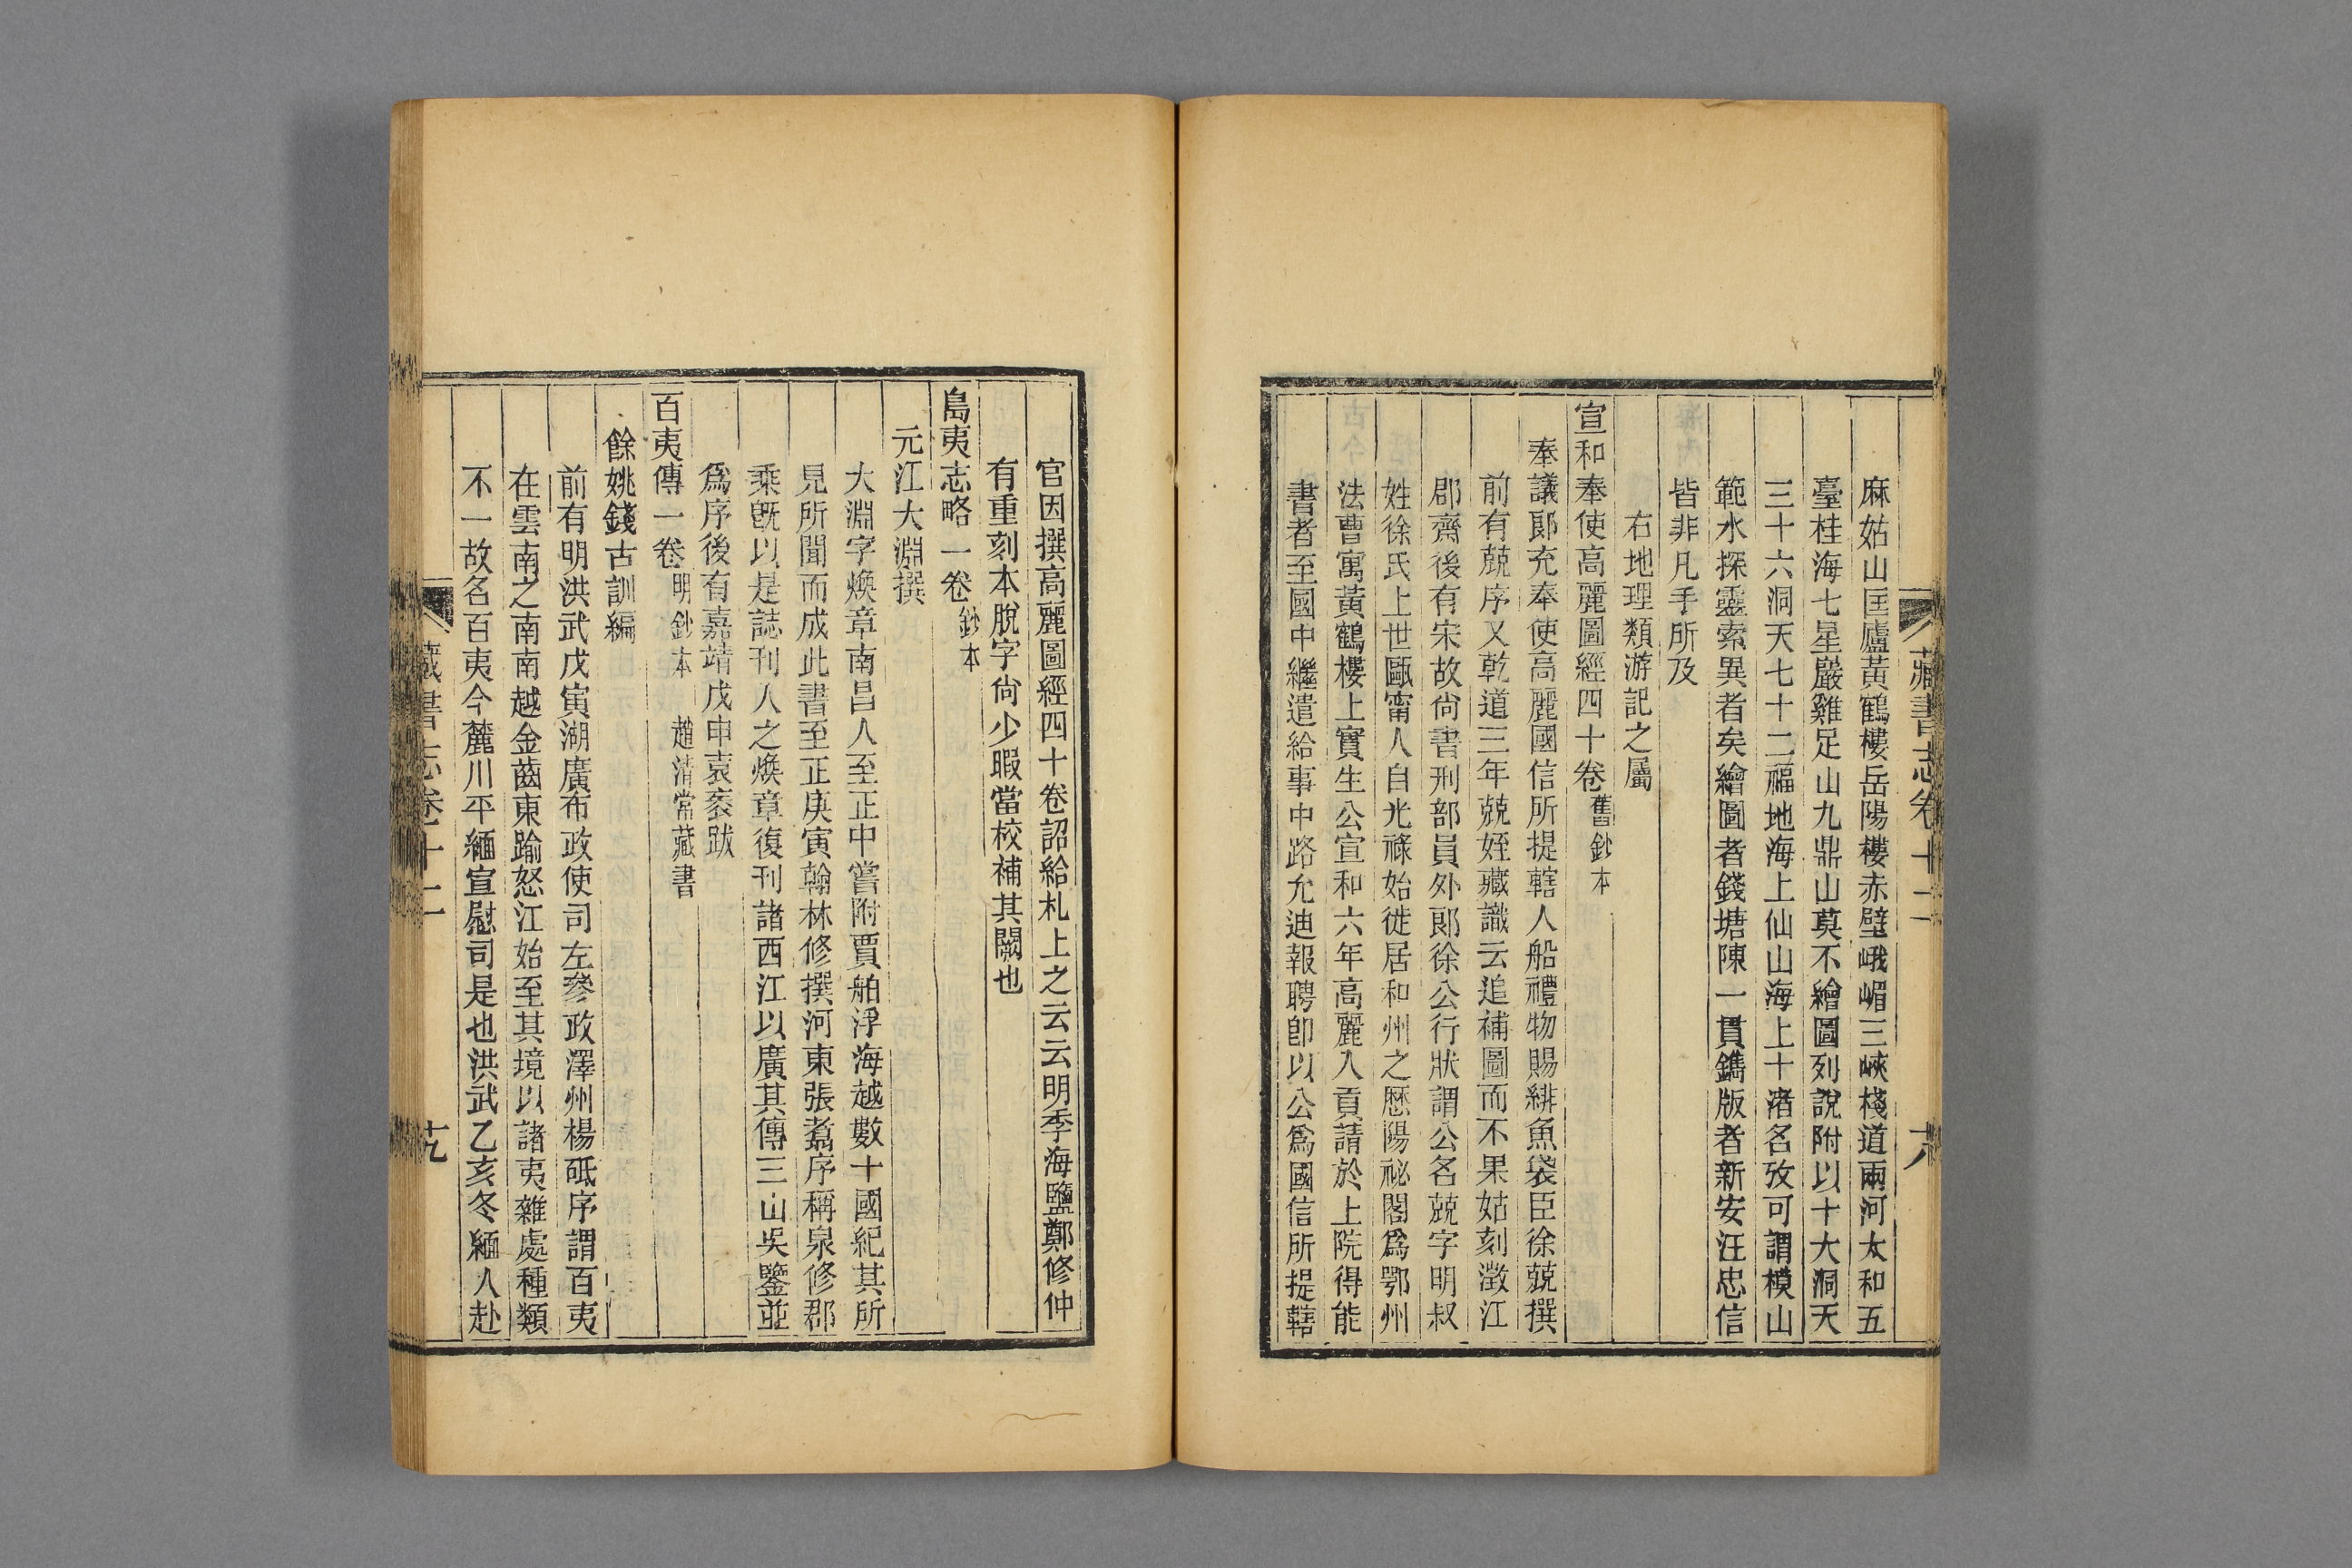 麻姑山匡廬黃鶴樓岳陽樓赤壁峨嵋三峽棧道兩河太和五
臺桂海七星巖雞足山九鼎山莫不繪圖列說附以十大洞天
三十六洞天七十二福地海上仙山海上十渚名攷可謂模山
範水探靈索異者矣繪圖者錢塘陳一貫鐫版者新安汪忠信
皆非凡手所及
右地理類游記之屬
宣和奉使高麗圖經四十卷舊鈔本
奉議郞充奉使高麗國信所提轄人船禮物賜緋魚袋臣徐兢撰
前有兢序又乾道三年兢姪藏識云追補圖而不果姑刻澂江
郡齋後有宋故尙書刑部員外郞徐公行狀謂公名兢字明叔
姓徐氏上世甌甯人自光祿始徙居和州之歷陽祕閣爲鄂州
法曹寓黃鶴樓上實生公宣和六年高麗入貢請於上院得能
書者至國中繼遣給事中路允迪報聘卽以公爲國信所提轄
藏書志卷十二
官因撰高麗圖經四十卷詔給札上之云云明季海鹽鄭修仲
有重刻本脫字尙少暇當校補其闕也
島夷志略一卷鈔本
元江大淵撰
大淵字煥章南昌人至正中嘗附賈舶浮海越數十國紀其所
見所聞而成此書至正庚寅翰林修撰河東張翥序稱泉修郡
乘旣以是誌刊人之煥章復刊諸西江以廣其傳三山吳鑒並
爲序後有嘉靖戊申袁袠跋
百夷傳一卷明鈔本 趙淸常藏書
餘姚錢古訓編
前有明洪武戊寅湖廣布政使司左參政澤州楊砥序謂百夷
在雲南之南南越金齒東踰怒江始至其境以諸夷雜處種類
不一故名百夷今麓川平緬宣慰司是也洪武乙亥冬緬人赴
藏書志卷十二